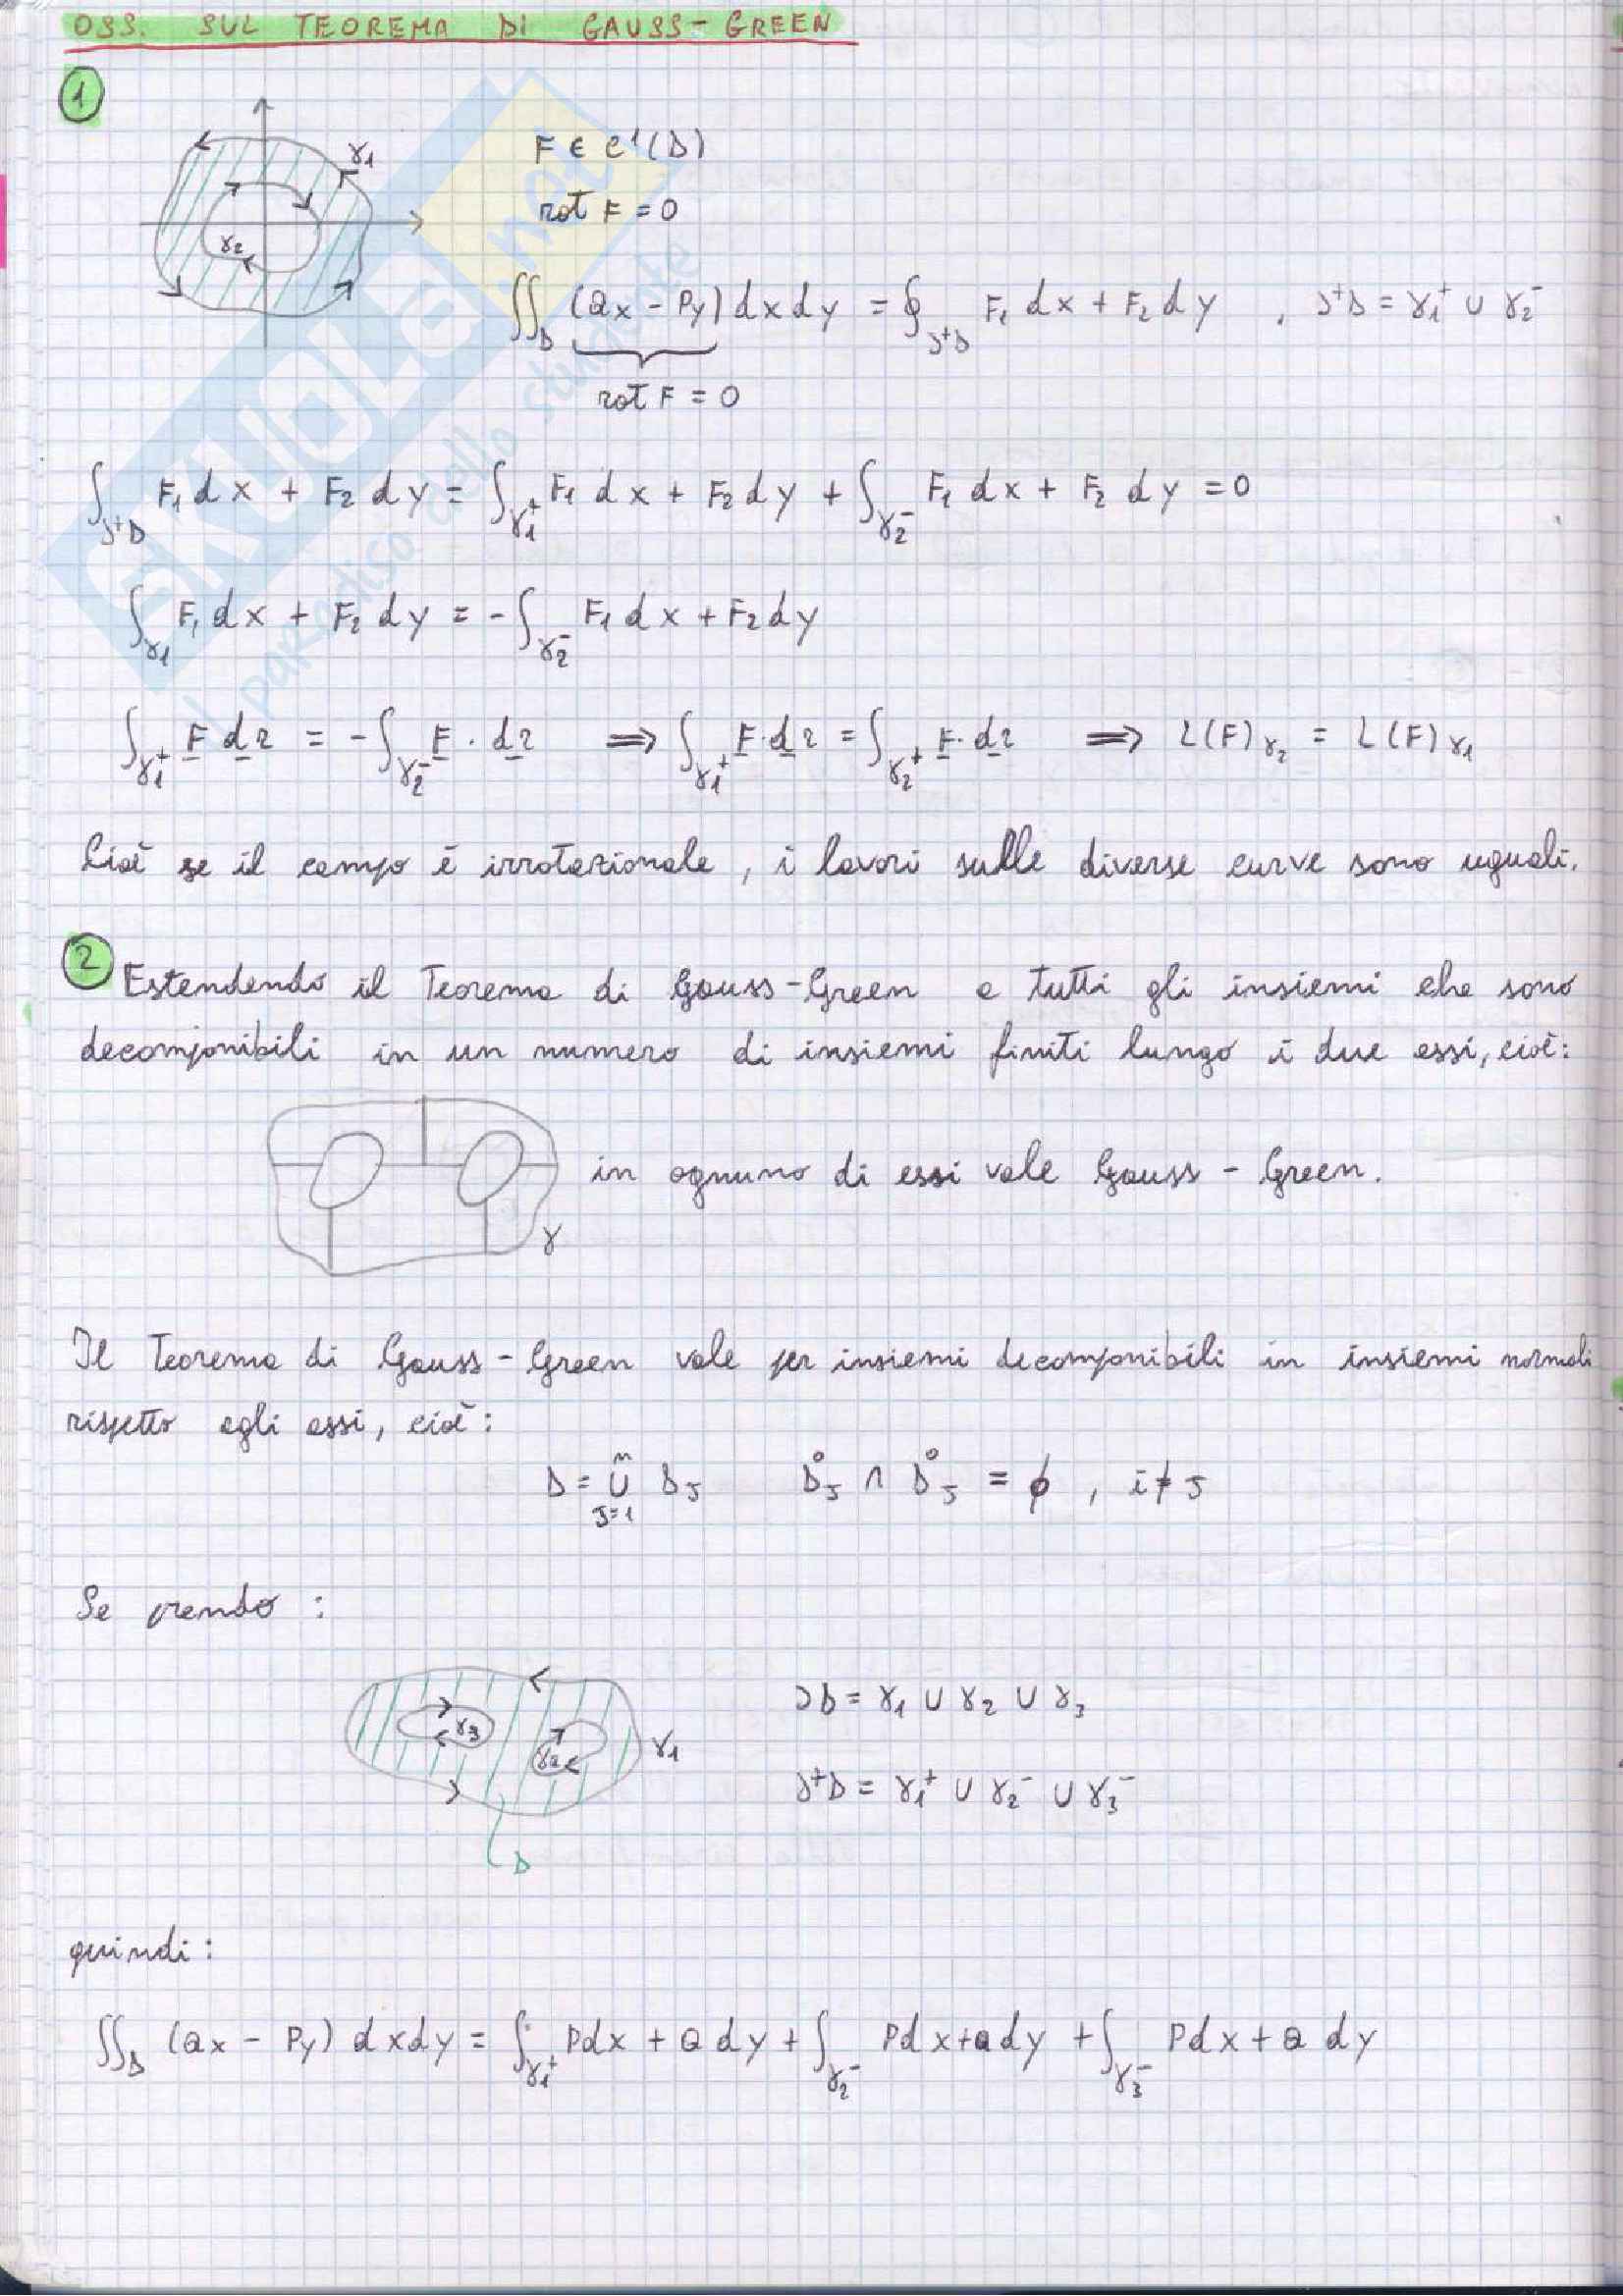 OSS. SUL TEOREMA DI GAUSS-GREEN
1
γ1
γ2
F ∈ C¹(D)
rot F = 0
∬_D (Qx - Py) dx dy = ∮_∂⁺D F1 dx + F2 dy , ∂⁺D = γ1⁺ ∪ γ2⁻
rot F = 0
∫_∂⁺D F1 dx + F2 dy = ∫_γ1⁺ F1 dx + F2 dy + ∫_γ2⁻ F1 dx + F2 dy = 0
∫_γ1 F1 dx + F2 dy = -∫_γ2⁻ F1 dx + F2 dy
∫_γ1⁺ F dr = -∫_γ2⁻ F · dr ⇒ ∫_γ1⁺ F · dr = ∫_γ2⁺ F · dr ⇒ L(F)γ2 = L(F)γ1
Cioè se il campo è irrotazionale, i lavori sulle diverse curve sono uguali.
2 Estendendo il Teorema di Gauss-Green a tutti gli insiemi che sono
decomponibili in un numero di insiemi finiti lungo i due assi, cioè:
in ognuno di essi vale Gauss - Green.
γ
Il Teorema di Gauss-Green vale per insiemi decomponibili in insiemi normali
rispetto agli assi, cioè:
D = ⋃_{J=1}^n D_J D̊_J ∩ D̊_J = ϕ , i ≠ J
Se prendo :
γ3
γ2
γ1
D
∂D = γ1 ∪ γ2 ∪ γ3
∂⁺D = γ1⁺ ∪ γ2⁻ ∪ γ3⁻
quindi:
∬_D (Qx - Py) dxdy = ∫_γ1⁺ Pdx + Q dy + ∫_γ2⁻ Pdx+Qdy + ∫_γ3⁻ Pdx + Q dy
SKUOLA.net
il paradiso dello studente